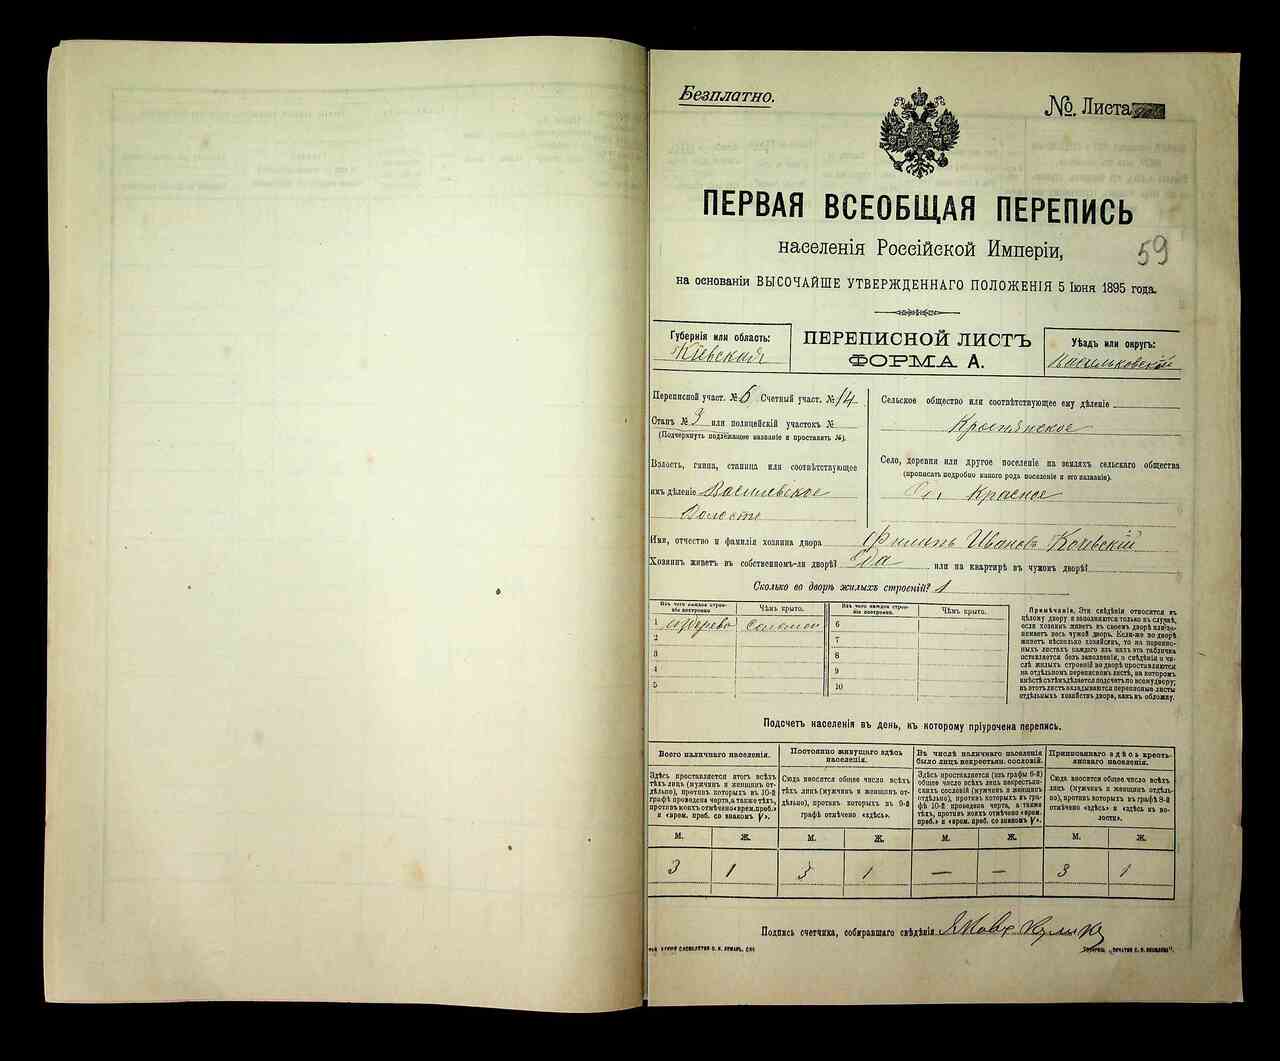 Безплатно.
№. Листа
ПЕРВАЯ ВСЕОБЩАЯ ПЕРЕПИСЬ
населенія Россійской Имперіи,
59
на основаніи ВЫСОЧАЙШЕ УТВЕРЖДЕННАГО ПОЛОЖЕНІЯ 5 Іюня 1895 года.
Губернія или область:
Кіевская
ПЕРЕПИСНОЙ ЛИСТЪ
ФОРМА А.
Уѣздъ или округъ:
Васильковскій
Переписной участ. № 6 Счетный участ. № 14
Станъ № 3 или полицейскій участокъ №
(Подчеркнуть подлежащее названіе и проставить №).
Волость, гмина, станица или соотвѣтствующее
имъ дѣленіе Василевское
Волости
Сельское общество или соотвѣтствующее ему дѣленіе
Краснянское
Село, деревня или другое поселеніе на земляхъ сельскаго общества
(прописать подробно какого рода поселеніе и его названіе).
Красное
Имя, отчество и фамилія хозяина двора Филипъ Ивановъ
Хозяинъ живетъ въ собственномъ-ли дворѣ? Да или на квартирѣ въ чужомъ дворѣ?
Сколько во дворѣ жилыхъ строеній? 1
Изъ чего каждое строе-
ніе построено
Чѣмъ крыто.
Изъ чего каждое строе-
ніе построено
Чѣмъ крыто.
1 Соломой 6
2 7
3 8
4 9
5 10
Примѣчаніе. Эти свѣдѣнія относятся къ
цѣлому двору и заполняются только въ случаѣ,
если хозяинъ живетъ въ своемъ дворѣ или за-
нимаетъ весь чужой дворъ. Если-же во дворѣ
живетъ нѣсколько хозяйствъ, то на перепис-
ныхъ листахъ каждаго изъ нихъ эта табличка
оставляется безъ заполненія, а свѣдѣнія о чи-
слѣ жилыхъ строеній во дворѣ проставляются
на отдѣльномъ переписномъ листѣ, на которомъ
вмѣстѣ съ тѣмъ дѣлается подсчетъ по всему двору;
въ этотъ листъ вкладываются переписные листы
отдѣльныхъ хозяйствъ двора, какъ въ обложку.
Подсчетъ населенія въ день, къ которому пріурочена перепись.
Всего наличнаго населенія.
Здѣсь проставляется итогъ всѣхъ
тѣхъ лицъ (мужчинъ и женщинъ от-
дѣльно), противъ которыхъ въ 10-й
графѣ проведена черта, а также тѣхъ,
противъ коихъ отмѣчено «врем. преб.»
и «врем. преб. со знакомъ V».
Постоянно живущаго здѣсь
населенія.
Сюда вносится общее число всѣхъ
тѣхъ лицъ (мужчинъ и женщинъ от-
дѣльно), противъ которыхъ въ 9-й
графѣ отмѣчено «здѣсь».
Въ числѣ наличнаго населенія
было лицъ некрестьян. сословій.
Здѣсь проставляется (изъ графы 6-й)
общее число всѣхъ лицъ некрестьян-
скихъ сословій (мужчинъ и женщинъ
отдѣльно), противъ которыхъ въ гра-
фѣ 10-й проведена черта, а также
тѣхъ, противъ коихъ отмѣчено «врем.
преб.» и «врем. преб. со знакомъ V».
Приписаннаго здѣсь кресть-
янскаго населенія.
Сюда вносится общее число всѣхъ
лицъ (мужчинъ и женщинъ отдѣль-
но), противъ которыхъ въ графѣ 8-й
отмѣчено «здѣсь» и «здѣсь въ во-
лости».
М. Ж. М. Ж. М. Ж. М. Ж.
3 1 3 1 — — 3 1
Подпись счетчика, собиравшаго свѣдѣнія